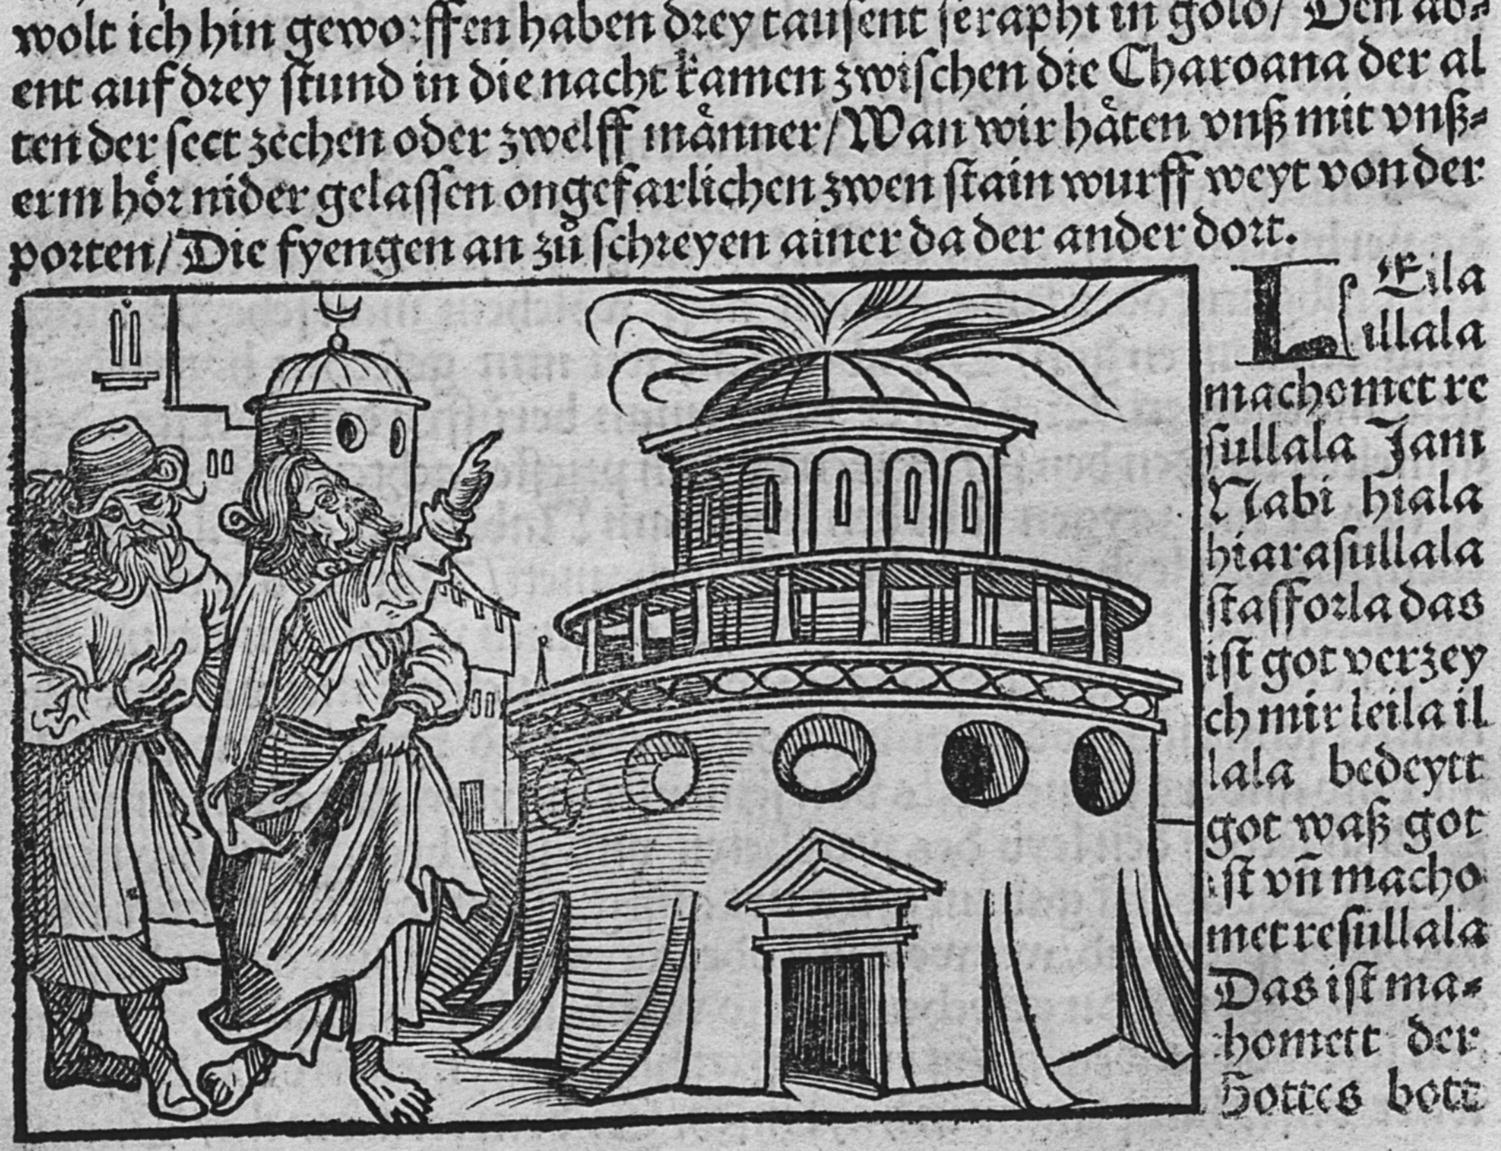 wolt ich hin geworffen haben drey tausent seraphi in gold/ Den ab⸗
ent auf drey stund in die nacht kamen zwischen die Charoana der al
ten der sect zechen oder zwelff maͤnner/Wan wir haͤten vnß mit vnß⸗
erm hoͤr nider gelassen ongefarlichen zwen stain wurff weyt von der
porten/Die fyengen an zuͦ schreyen ainer da der ander dort.
LEila
illala
machomet re
sullala Jam
Nabi hiala
hiarasullala
stafforla das
ist got verzey
ch mir leila il
lala bedeytt
got waß got
ist vñ macho
met resullala
Das ist ma⸗
homett der
Gottes bott